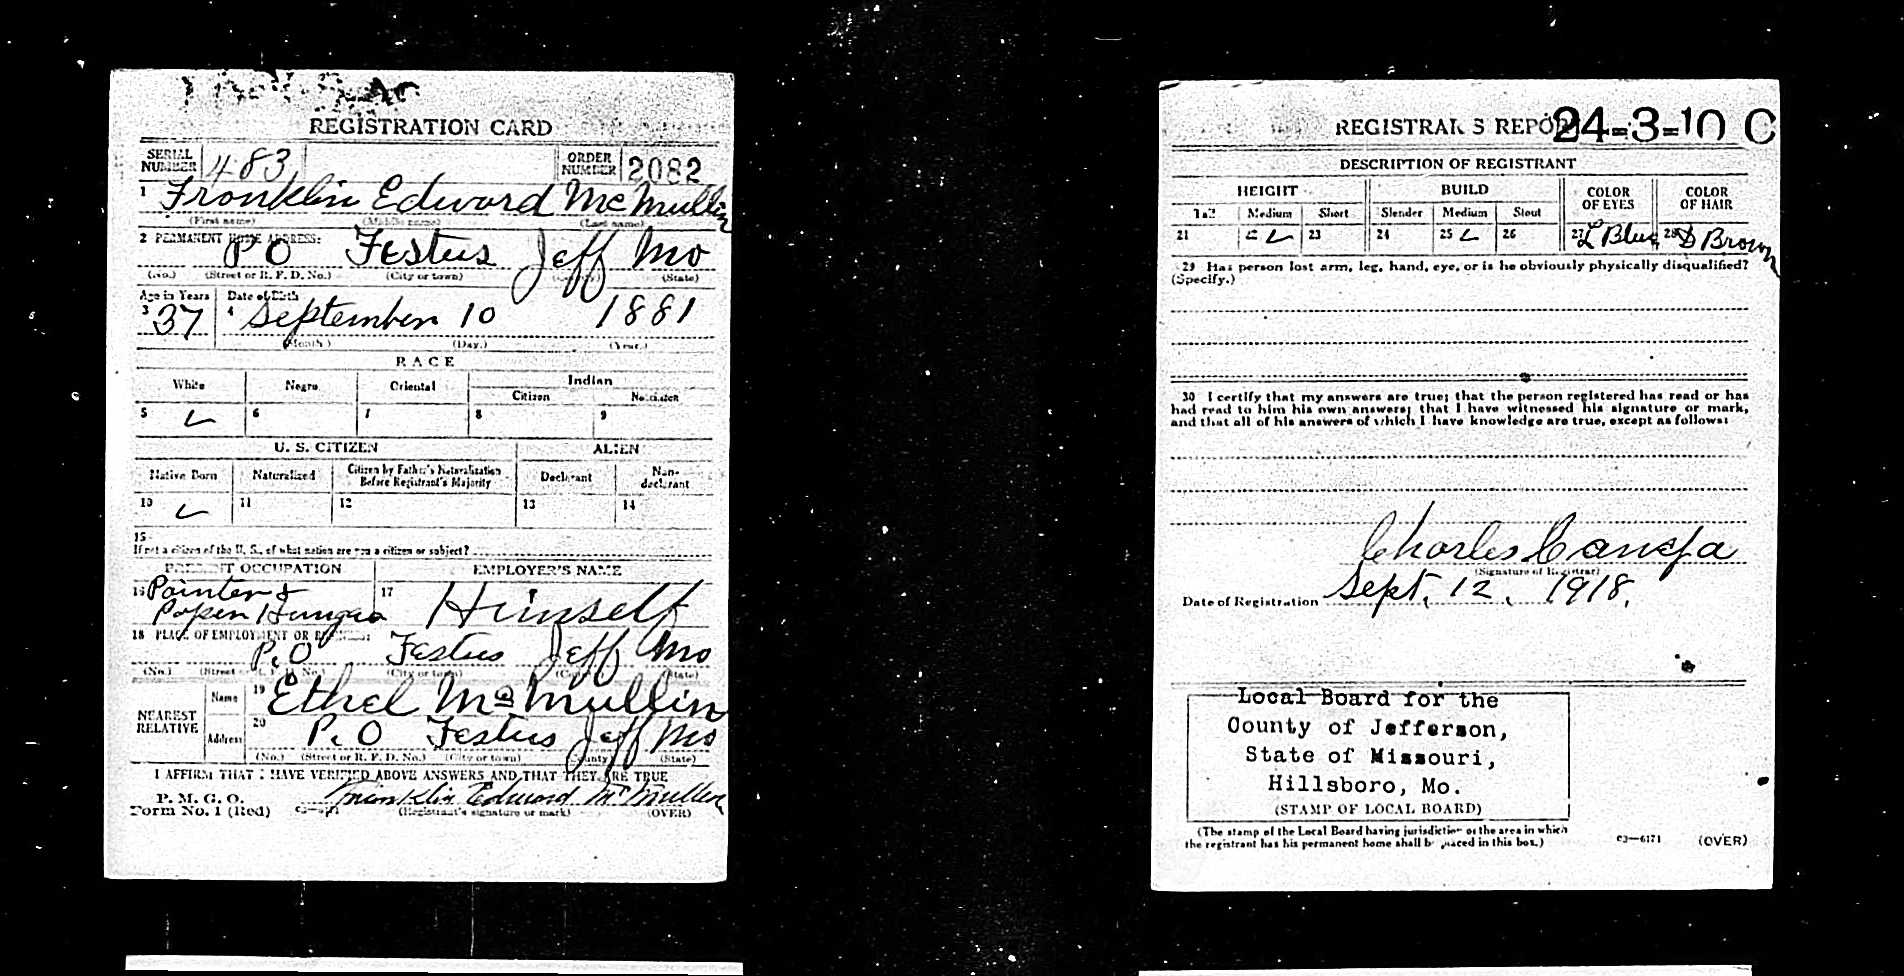 REGISTRATION CARD
SERIAL NUMBER 483 ORDER NUMBER 2082
1 Franklin Edward McMullin
(First name) (Middle name) (Last name)
2 PERMANENT HOME ADDRESS:
P O Festus Jeff Mo
(No.) (Street or R. F. D. No.) (City or town) (County) (State)
Age in Years Date of Birth
3 37 4 September 10 1881
(Month.) (Day.) (Year.)
RACE
White Negro Oriental Indian
Citizen Noncitizen
5 ✓ 6 7 8 9
U. S. CITIZEN ALIEN
Native Born Naturalized Citizen by Father's Naturalization Before Registrant's Majority Declarant Non-declarant
10 ✓ 11 12 13 14
15
If not a citizen of the U. S., of what nation are you a citizen or subject?
PRESENT OCCUPATION EMPLOYER'S NAME
16 Painter & Paper Hanger 17 Himself
18 PLACE OF EMPLOYMENT OR BUSINESS:
P. O Festus Jeff Mo
(No.) (Street or R. F. D. No.) (City or town) (County) (State)
NEAREST RELATIVE
Name 19 Ethel McMullin
Address 20 P. O Festus Jeff Mo
(No.) (Street or R. F. D. No.) (City or town) (County) (State)
I AFFIRM THAT I HAVE VERIFIED ABOVE ANSWERS AND THAT THEY ARE TRUE
P. M. G. O.
Form No. 1 (Red) Franklin Edward McMullin
(Registrant's signature or mark) (OVER)
REGISTRAR'S REPORT 24-3-10 C
DESCRIPTION OF REGISTRANT
HEIGHT BUILD COLOR OF EYES COLOR OF HAIR
Tall Medium Short Slender Medium Stout
21 22 ✓ 23 24 25 ✓ 26 27 L Blue 28 D Brown
29 Has person lost arm, leg, hand, eye, or is he obviously physically disqualified?
(Specify.)
30 I certify that my answers are true; that the person registered has read or has
had read to him his own answers; that I have witnessed his signature or mark,
and that all of his answers of which I have knowledge are true, except as follows:
Charles Canepa
(Signature of Registrar)
Date of Registration Sept. 12. 1918.
Local Board for the
County of Jefferson,
State of Missouri,
Hillsboro, Mo.
(STAMP OF LOCAL BOARD)
(The stamp of the Local Board having jurisdiction of the area in which
the registrant has his permanent home shall be placed in this box.)
03—6171 (OVER)